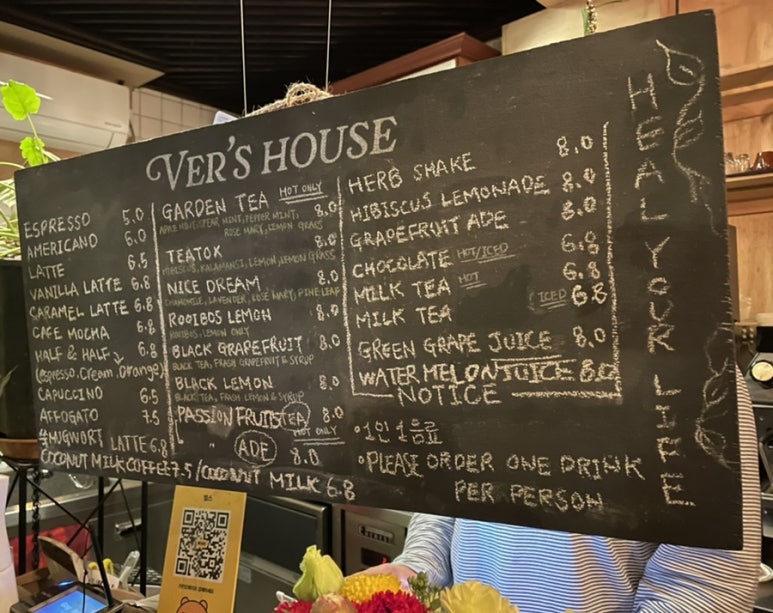 VER'S HOUSE
ESPRESSO 5.0
AMERICANO 6.0
LATTE 6.5
VANILLA LATTE 6.8
CARAMEL LATTE 6.8
CAFE MOCHA 6.8
HALF & HALF 6.8
(espresso.Cream.Orange)
CAPUCCINO 6.5
AFFOGATO 7.5
MUGWORT LATTE 6.8
COCONUT MILK COFFEE 7.5 / COCONUT MILK 6.8
GARDEN TEA HOT ONLY 8.0
APPLE MINT, SPEAR MINT, PEPPER MINT,
ROSE MARY, LEMON GRASS
TEATOX 8.0
HIBISCUS, KALAMANSI, LEMON, LEMON GRASS
NICE DREAM 8.0
CHAMOMILE, LAVENDER, ROSE MARY, PINE LEAF
ROOIBOS LEMON 8.0
ROOIBOS, LEMON ONLY
BLACK GRAPEFRUIT 8.0
BLACK TEA, FRASH GRAPEFRUIT & SYRUP
BLACK LEMON 8.0
BLACK TEA, FRASH LEMON & SYRUP
PASSION FRUITS TEA 8.0
HOT ONLY
" ADE 8.0
HERB SHAKE 8.0
HIBISCUS LEMONADE 8.0
GRAPEFRUIT ADE 8.0
CHOCOLATE HOT/ICED 6.8
MILK TEA HOT 6.8
MILK TEA ICED 6.8
GREEN GRAPE JUICE 8.0
WATER MELON JUICE 8.0
NOTICE
•1인 1음료
•PLEASE ORDER ONE DRINK
PER PERSON
HEAL YOUR LIFE